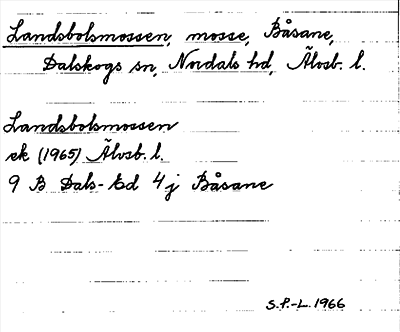 Landsbolsmossen, mosse, Båsane,
Dalskogs sn, Nordals hd, Älvsb. l.
Landsbolsmossen
ek (1965) Älvsb. l.
9 B Dals-Ed 4j Båsane
S.P.-L. 1966